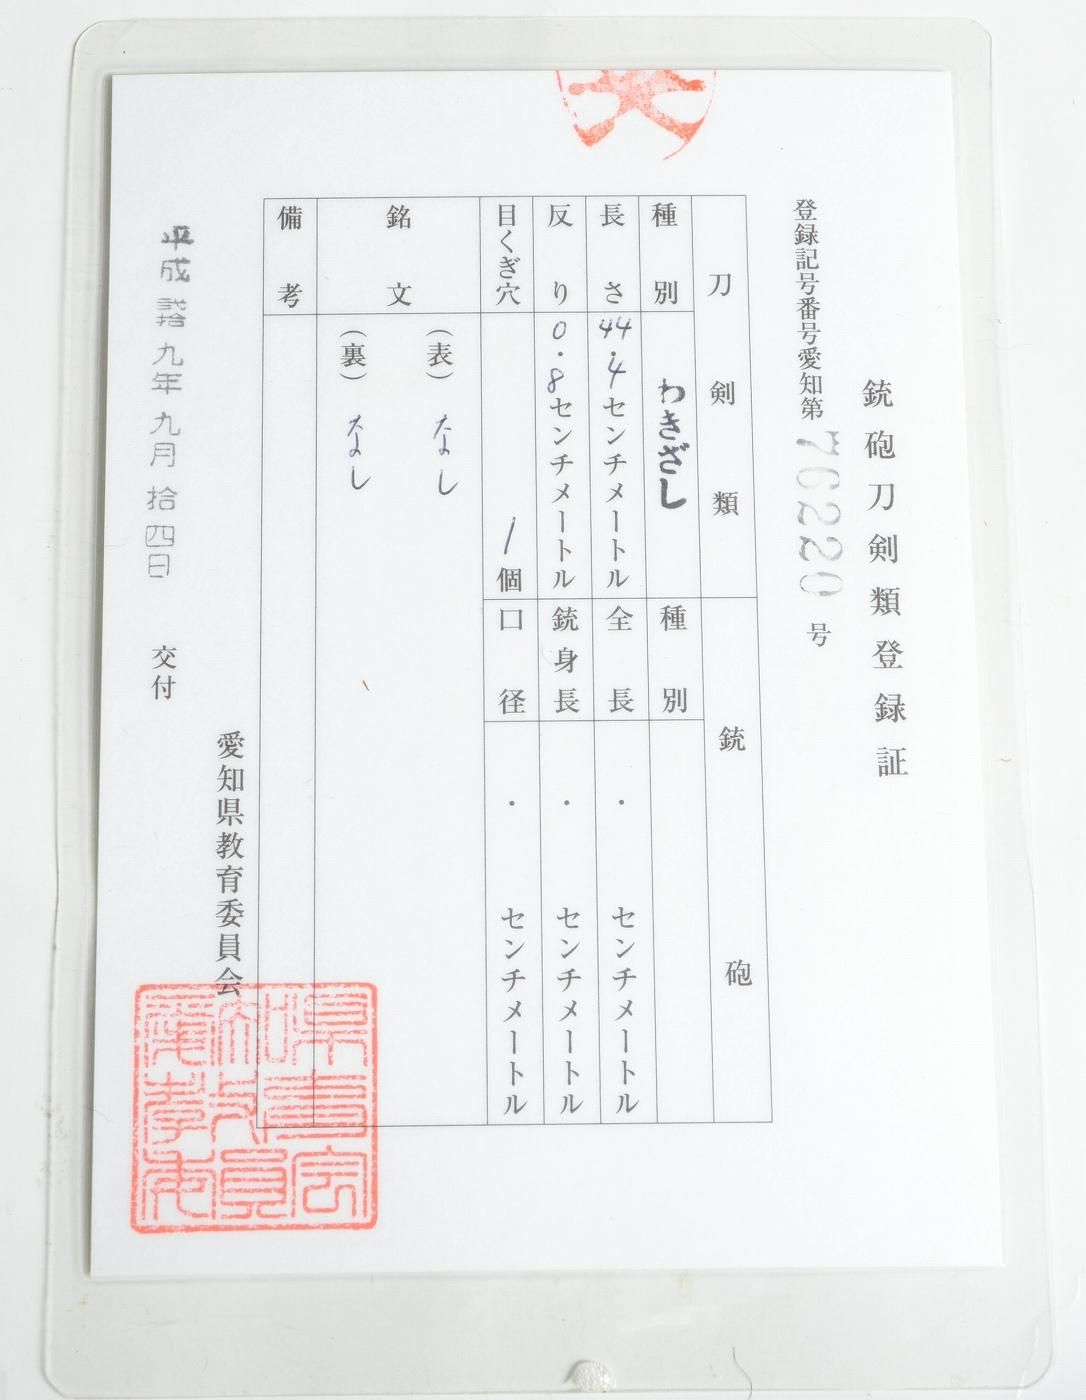 銃砲刀剣類登録証
登録記号番号愛知第76220号
刀剣類
銃砲
種別 わきざし
種別
長さ 44.4センチメートル
全長 ・ センチメートル
反り 0.8センチメートル
銃身長 ・ センチメートル
目くぎ穴 1個
口径 ・ センチメートル
銘文
(表) なし
(裏) なし
備考
愛知県教育委員会
平成弐拾九年九月拾四日 交付